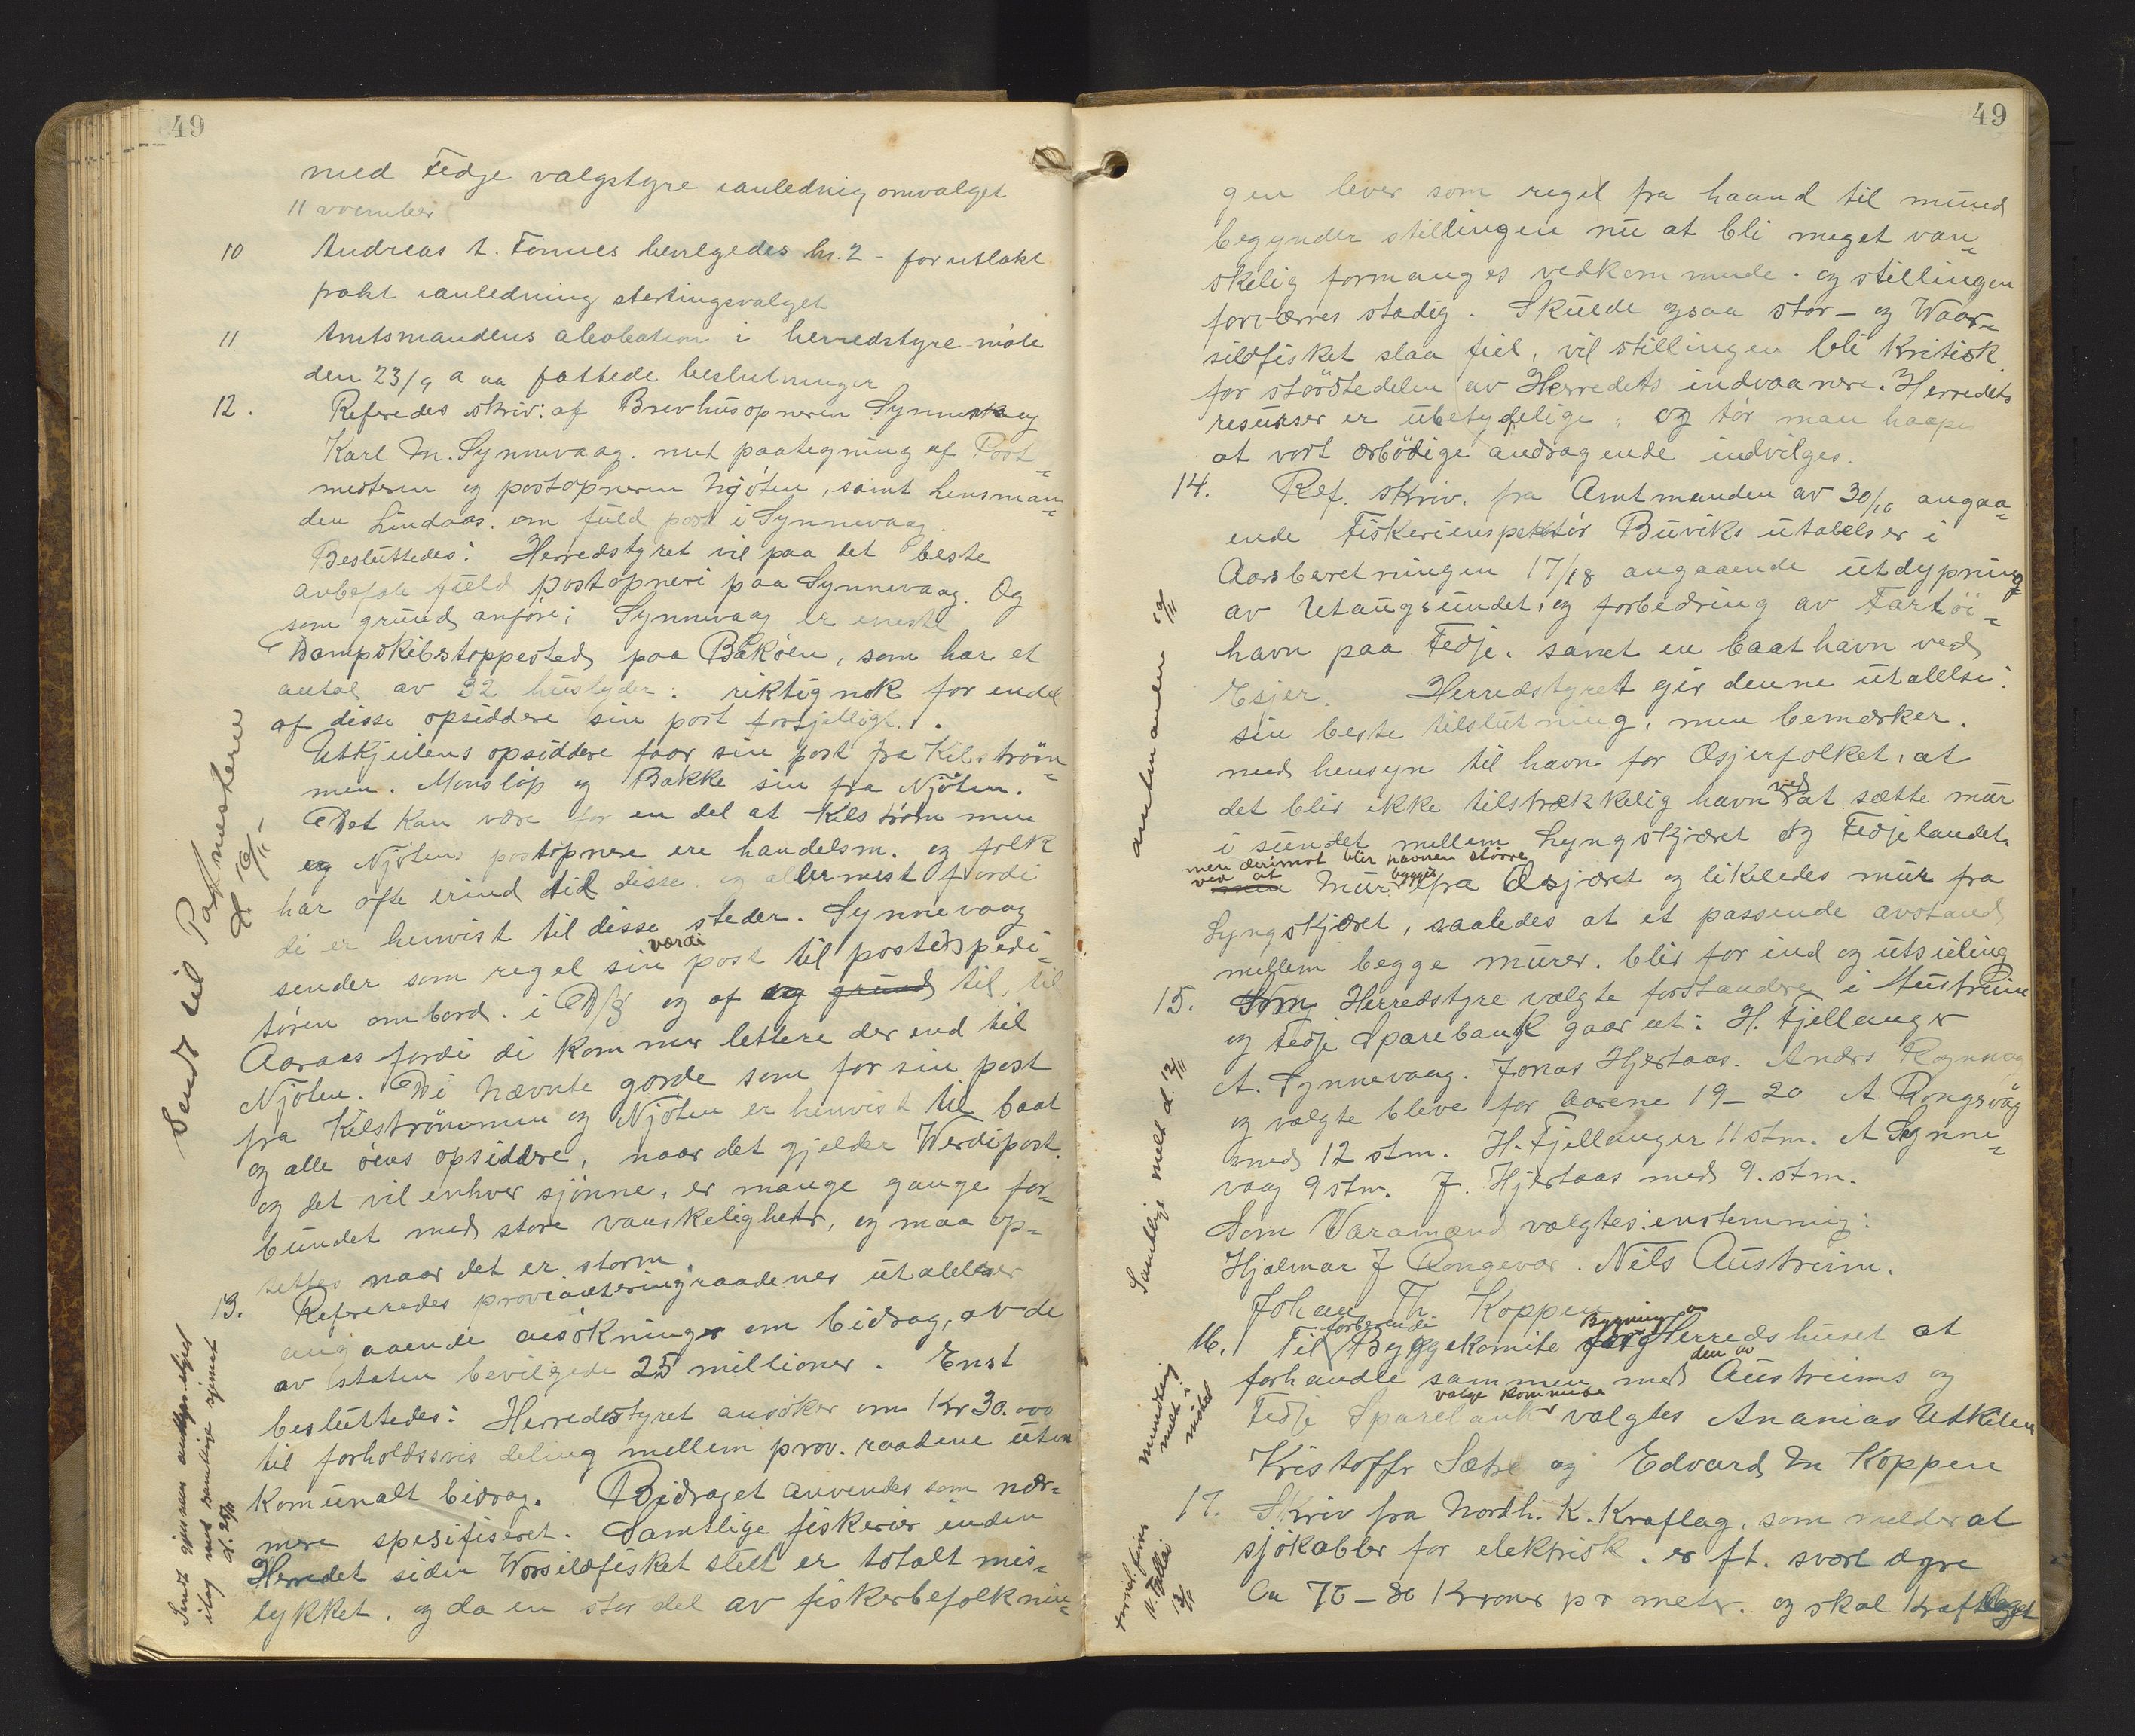 49
med Fedje valgstyre ianledning omvalget
11 november
10 Andreas A. Fonnes bevilgedes kr. 2 - for utlakt
frakt ianledning stortingsvalget
11 Amtsmandens i herredstyre-møte
den 23/9 a aa fattede beslutninger
12. Referedes skriv: af Brevhusopneren Synnes og
Karl M. Synnevaag. med paategning af Post=
mesteren og postopneren Njöten, samt Lensman=
den Lindaas. om fuld post i Synnevaag.
Besluttedes: Herredstyret vil paa det beste
anbefale fuld postopneri paa Synnevaag. Og
som grund anföre; Synnevaag er eneste
Dampskibstoppested paa Bakøen, som har et
antal av 32 huslyder: riktignok for endel
af disse opsiddere sin post forsjelligt..
Utkjeilens opsiddere faar sin post fra Kilströmm=
men. Monslöp og Bakke sin fra Njöten.
Det kan være for en del at Kilströmmen
og Njötens postopnere ere handelsm. og folk
har ofte erind til disse. og allermest fordi
di er henvist til disse steder. Synnevaag
sender som regel sin værdi post til postexpedi=
tören ombord. i D/S og af og grund til, til
Aaraas fordi di kommer lettere der end til
Njöten. Di nævnte gorde som for sin post
fra Kilströmmen og Njöten er henvist til baat
og alle öens opsiddere, naar det gjelder Werdipost.
og det vil enhver sjönne, er mange gange for=
bundet med store vanskeligheter, og maa op=
settes naar det er storm.
13. Refereredes provianteringraadenes utalelser
angaaende ansökninger om bidrag, av de
av staten bevilgede 25 millioner. Enst
besluttedes: Herredstyret ansöker om Kr 30.000
til forholdssvis deling mellem prov. raadene uten
Komunalt bidrag. Bidraget anvendes som nær=
mere spesifiseret. Samtlige fiskerier inden
Herredet siden Worsildfisket slut er totalt mis=
lykket. og da en stor del av fiskerbefolknin=
Sendt til Postmesteren
d 16/11
d. 25/11
49
gen lever som regel fra haand til mund
begynder stillingen nu at bli meget van=
skelig formanges vedkommende. og stillingen
forværres stadig. Skulde ogsaa stor- og Waar=
sildfisket slaa feil, vil stillingen bli kritisk
for störstedelen av Herredets indvaanere. Herredets
resurser er ubetydelige, og tör man haape
at vort ærbödige andragende indvilges.
14. Ref. skriv. fra Amtmanden av 30/10 angaa=
ende Fiskeriinspektör Buviks utalelser i
Aarsberetningen 17/18 angaaende utdypning
av Utangsundet, og forbedring av Fartöi=
havn paa Fedje. samt en baat havn ved
Esjer. Herredstyret gir denne utalelse:
sin beste tilslutning, men bemærker.
med hensyn til havn for Æsjerfolket, at
det blir ikke tilstrækkelig havn ved at sætte mur
i sundet mellem Lyngskjæret og Fedjelandet.
men derimot blir havnen större
ved at mur bygges fra Æsjæret og likeledes mur fra
Lyngskjæret, saaledes at et passende avstand
mellem begge murer. blir for ind og utseiling
15. Som Herredstyre valgte forstandere i Austrheim
og Fedje Sparebank gaar ut: H. Fjellanger
A. Synnevaag. Jonas Hjertaas. Anders
og valgte bleve for Aarene 19-20 A Rongsvåg
med 12 stm. H. Fjellanger 11 stm. A Synne=
vaag 9 stm. J. Hjertaas med 9. stm.
Som Varamænd valgtes: enstemmig:
Hjalmar J Rongevær. Nils Austreim.
Johan Th. Koppen
16. Til forberende Byggekomite for Bygning av Herredshuset at
forhandle sammen med den av Austreims og
Fedje Sparebank valge kommite valgtes Ananias Utkilen
Kristoffer Sætre og Edvard M Koppen
17. Skriv fra Nordh. K. Kraflag, som melder at
sjökabler for elektrisk. er ft. svært dyre
Ca 70-80 Kroner pr meter.. og skal Kraftlaget
amtmanden 19/11
Samtlige melt d. 12/11
mundtlig
melt
13/11